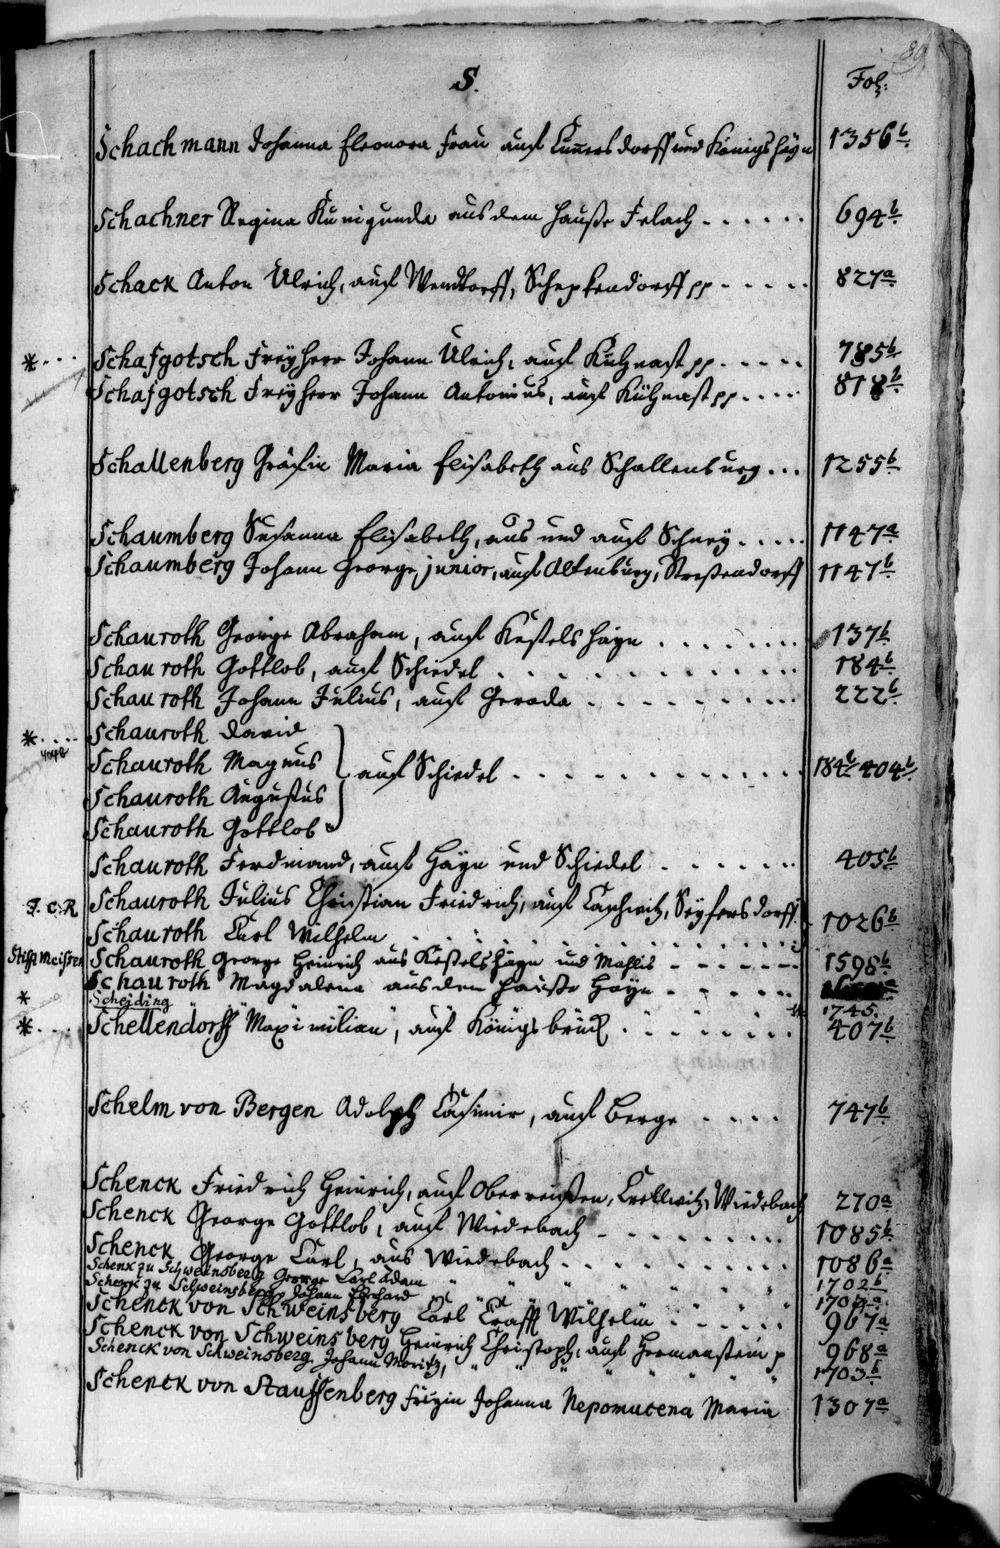 89
S.
Fol:
Schachmann Johanna Eleonora Frau auf Cunnersdorff und Königshayn 1356b
Schachner Regina Kunigunda aus dem Hauße Felach 694b
Schack Anton Ulrich, auf Wendtorff, Schepkendorff pp 827a
* Schafgotsch Freyherr Johann Ulrich, auf Kühnast pp 785b
Schafgotsch Freyherr Johann Antonius, auf Kühnast pp 818b
Schallenberg Gräfin Maria Elisabeth aus Schallenburg 1255b
Schaumberg Susanna Elisabeth, aus und auf Schney 1147a
Schaumberg Johann George, junior, auf Altenburg, Streßendorff 1147b
Schauroth George Abraham, auf Keßelshayn 137b
Schauroth Gottlob, auf Schiedel 184b
Schauroth Johann Julius, auf Geroda 222b
* Schauroth David
Schauroth Magnus
auf Schiedel 184b 404b
Schauroth Augustus
Schauroth Gottlob
Schauroth Ferdinand, auf Hayn und Schiedel 405b
J. C. R. Schauroth Julius Christian Friedrich, auf Caschwitz, Seyfersdorff
Schauroth Carl Wilhelm 1026b
Stifts Meister Schauroth George Heinrich aus Keßelshayn und Mahlis 1598b
Schauroth Magdalena aus dem Hauße Hayn
* Scheiding 1745.
* Schellendorff Maximilian, auf Königsbrück 407b
Schelm von Bergen Adolph Casimir, auf Berge 747b
Schenck Friedrich Heinrich, auf Oberreußen, Crellwitz, Wiedebach 270a
Schenck George Gottlob, auf Wiedebach 1085b
Schenck George Carl, aus Wiedebach 1086a
Schenk zu Schweinsberg George Carl Adam 1702b
Schenk zu Schweinsberg Johann
Schenck von Schweinsberg Carl Crafft Wilhelm 967a
Schenck von Schweinsberg Heinrich Christoph, auf Hermanstein p 968a
Schenck von Schweinsberg Johann Moritz, 1703b
Schenck von Stauffenberg Freyin Johanna Nepomucena Maria 1307a